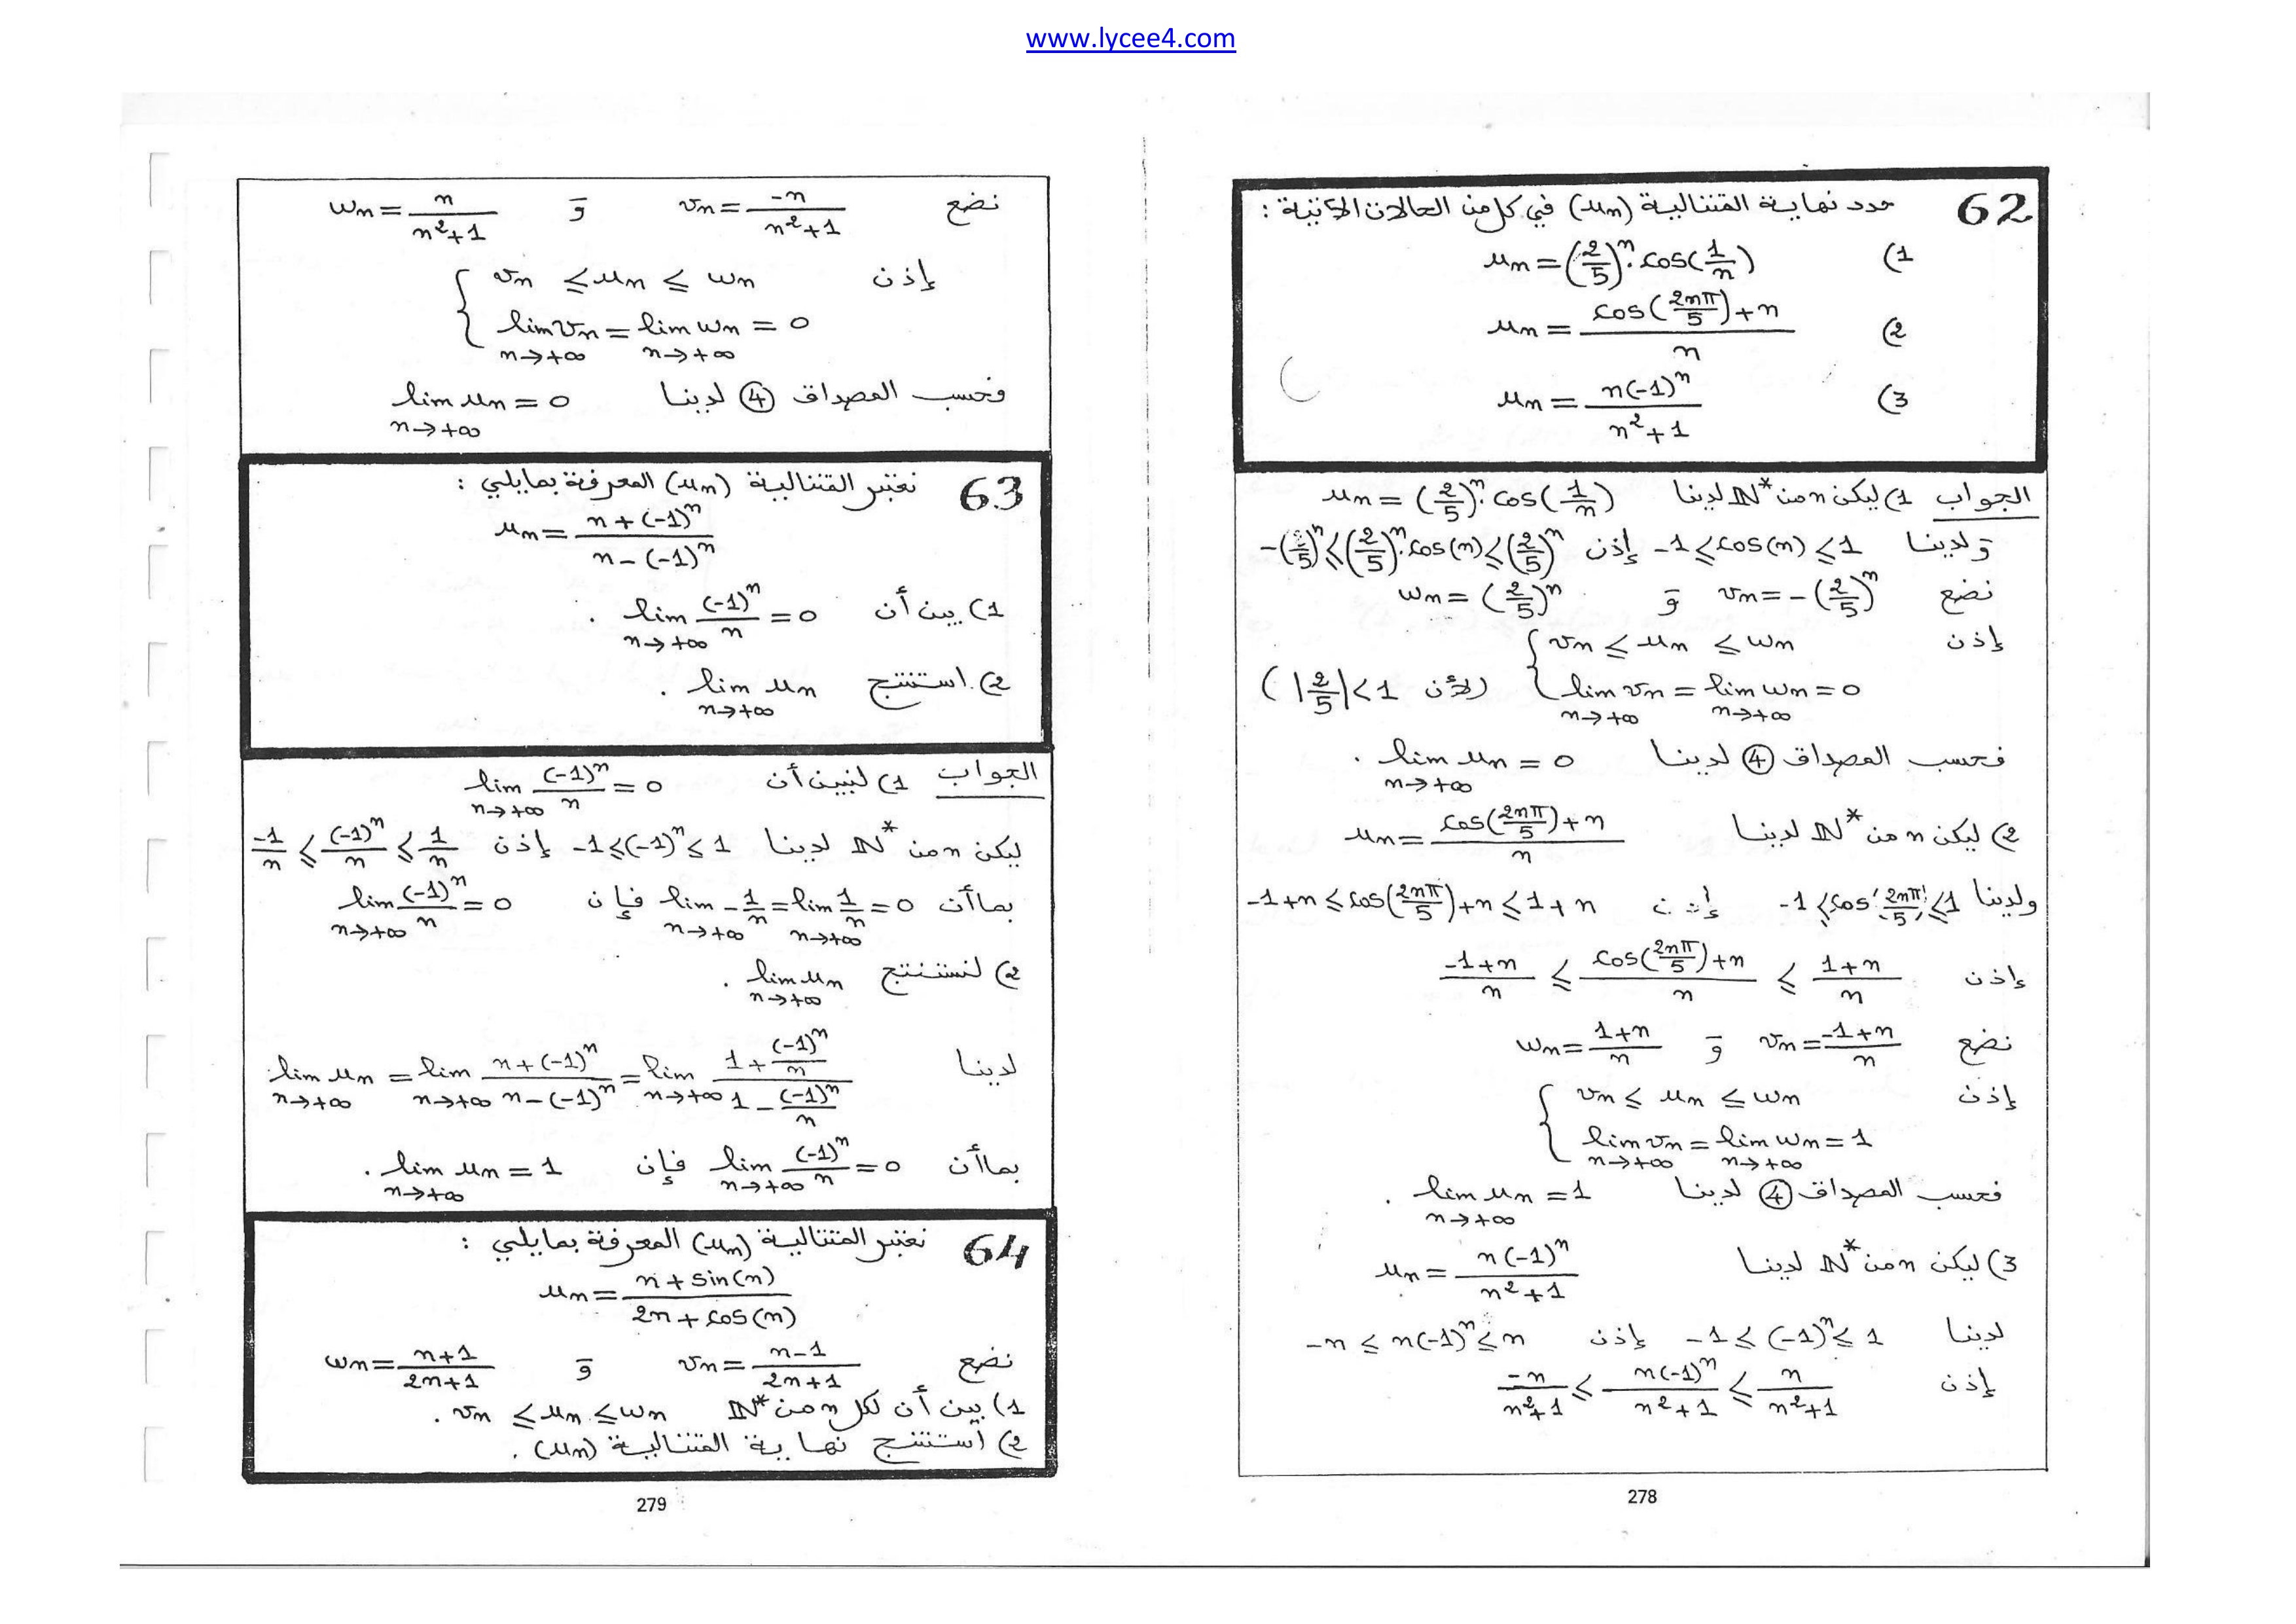 www.lycee4.com
62 حدد نهاية المتتالية (uₙ) في كل من الحالات الآتية :
1) uₙ = (2/5)ⁿ . cos(1/n)
2) uₙ = (cos(2nπ/5) + n) / n
3) uₙ = n(-1)ⁿ / (n² + 1)
الجواب 1) ليكن n من ℕ* لدينا uₙ = (2/5)ⁿ . cos(1/n)
ولدينا -1 ≤ cos(n) ≤ 1 إذن -(2/5)ⁿ ≤ (2/5)ⁿ . cos(n) ≤ (2/5)ⁿ
نضع vₙ = -(2/5)ⁿ و wₙ = (2/5)ⁿ
إذن { vₙ ≤ uₙ ≤ wₙ
lim vₙ = lim wₙ = 0 (لأن |2/5| < 1)
n→+∞ n→+∞
فحسب المصداق ④ لدينا lim uₙ = 0 .
n→+∞
2) ليكن n من ℕ* لدينا uₙ = (cos(2nπ/5) + n) / n
ولدينا -1 ≤ cos(2nπ/5) ≤ 1 إذن -1+n ≤ cos(2nπ/5) + n ≤ 1+n
إذن (-1+n)/n ≤ (cos(2nπ/5) + n)/n ≤ (1+n)/n
نضع vₙ = (-1+n)/n و wₙ = (1+n)/n
إذن { vₙ ≤ uₙ ≤ wₙ
lim vₙ = lim wₙ = 1
n→+∞ n→+∞
فحسب المصداق ④ لدينا lim uₙ = 1 .
n→+∞
3) ليكن n من ℕ* لدينا uₙ = n(-1)ⁿ / (n² + 1)
لدينا -1 ≤ (-1)ⁿ ≤ 1 إذن -n ≤ n(-1)ⁿ ≤ n
إذن -n/(n²+1) ≤ n(-1)ⁿ/(n²+1) ≤ n/(n²+1)
278
نضع vₙ = -n/(n²+1) و wₙ = n/(n²+1)
إذن { vₙ ≤ uₙ ≤ wₙ
lim vₙ = lim wₙ = 0
n→+∞ n→+∞
فحسب المصداق ④ لدينا lim uₙ = 0
n→+∞
63 نعتبر المتتالية (uₙ) المعرفة بمايلي :
uₙ = (n + (-1)ⁿ) / (n - (-1)ⁿ)
1) بين أن lim (-1)ⁿ/n = 0 .
n→+∞
2) استنتج lim uₙ .
n→+∞
الجواب 1) لنبين أن lim (-1)ⁿ/n = 0
n→+∞
ليكن n من ℕ* لدينا -1 ≤ (-1)ⁿ ≤ 1 إذن -1/n ≤ (-1)ⁿ/n ≤ 1/n
بما أن lim -1/n = lim 1/n = 0 فإن lim (-1)ⁿ/n = 0
n→+∞ n→+∞ n→+∞
2) لنستنتج lim uₙ .
n→+∞
لدينا lim uₙ = lim (n + (-1)ⁿ)/(n - (-1)ⁿ) = lim (1 + (-1)ⁿ/n)/(1 - (-1)ⁿ/n)
n→+∞ n→+∞ n→+∞
بما أن lim (-1)ⁿ/n = 0 فإن lim uₙ = 1 .
n→+∞ n→+∞
64 نعتبر المتتالية (uₙ) المعرفة بمايلي :
uₙ = (n + sin(n)) / (2n + cos(n))
نضع vₙ = (n-1)/(2n+1) و wₙ = (n+1)/(2n+1)
1) بين أن لكل n من ℕ* vₙ ≤ uₙ ≤ wₙ .
2) استنتج نهاية المتتالية (uₙ) .
279